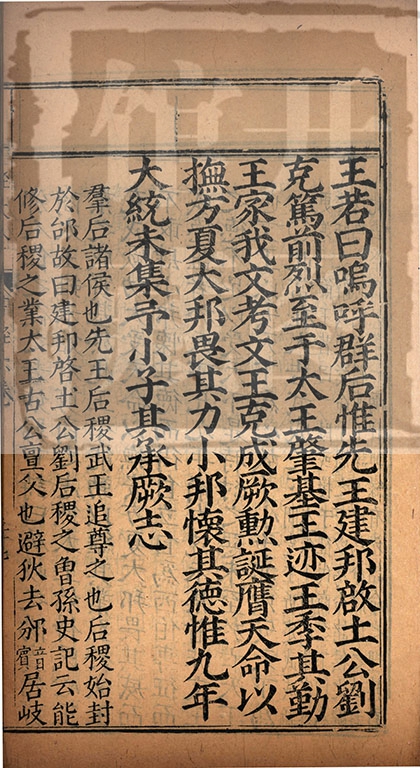 王若曰嗚呼群后惟先王建邦啟土公劉
克篤前烈至于太王肇基王迹王季其勤
王家我文考文王克成厥勲誕膺天命以
撫方夏大邦畏其力小邦懷其德惟九年
大統未集予小子其承厥志
羣后諸侯也先王后稷武王追尊之也后稷始封
於邰故曰建邦啓土公劉后稷之曾孫史記云能
修后稷之業太王古公亶父也避狄去邠音賓居岐